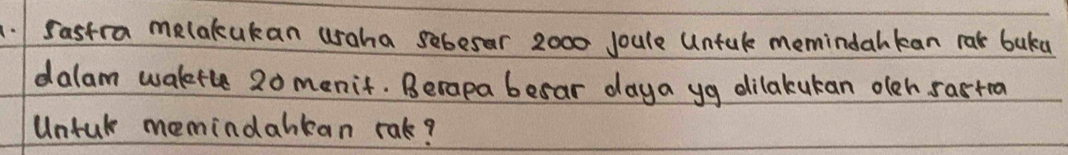 1. Sastra melakukan usaha sebesar 2000 joule untuk memindahkan rak buku
dalam waktu 20 menit. Berapa besar daya yg dilakukan oleh sastra
Untuk memindahkan rak?